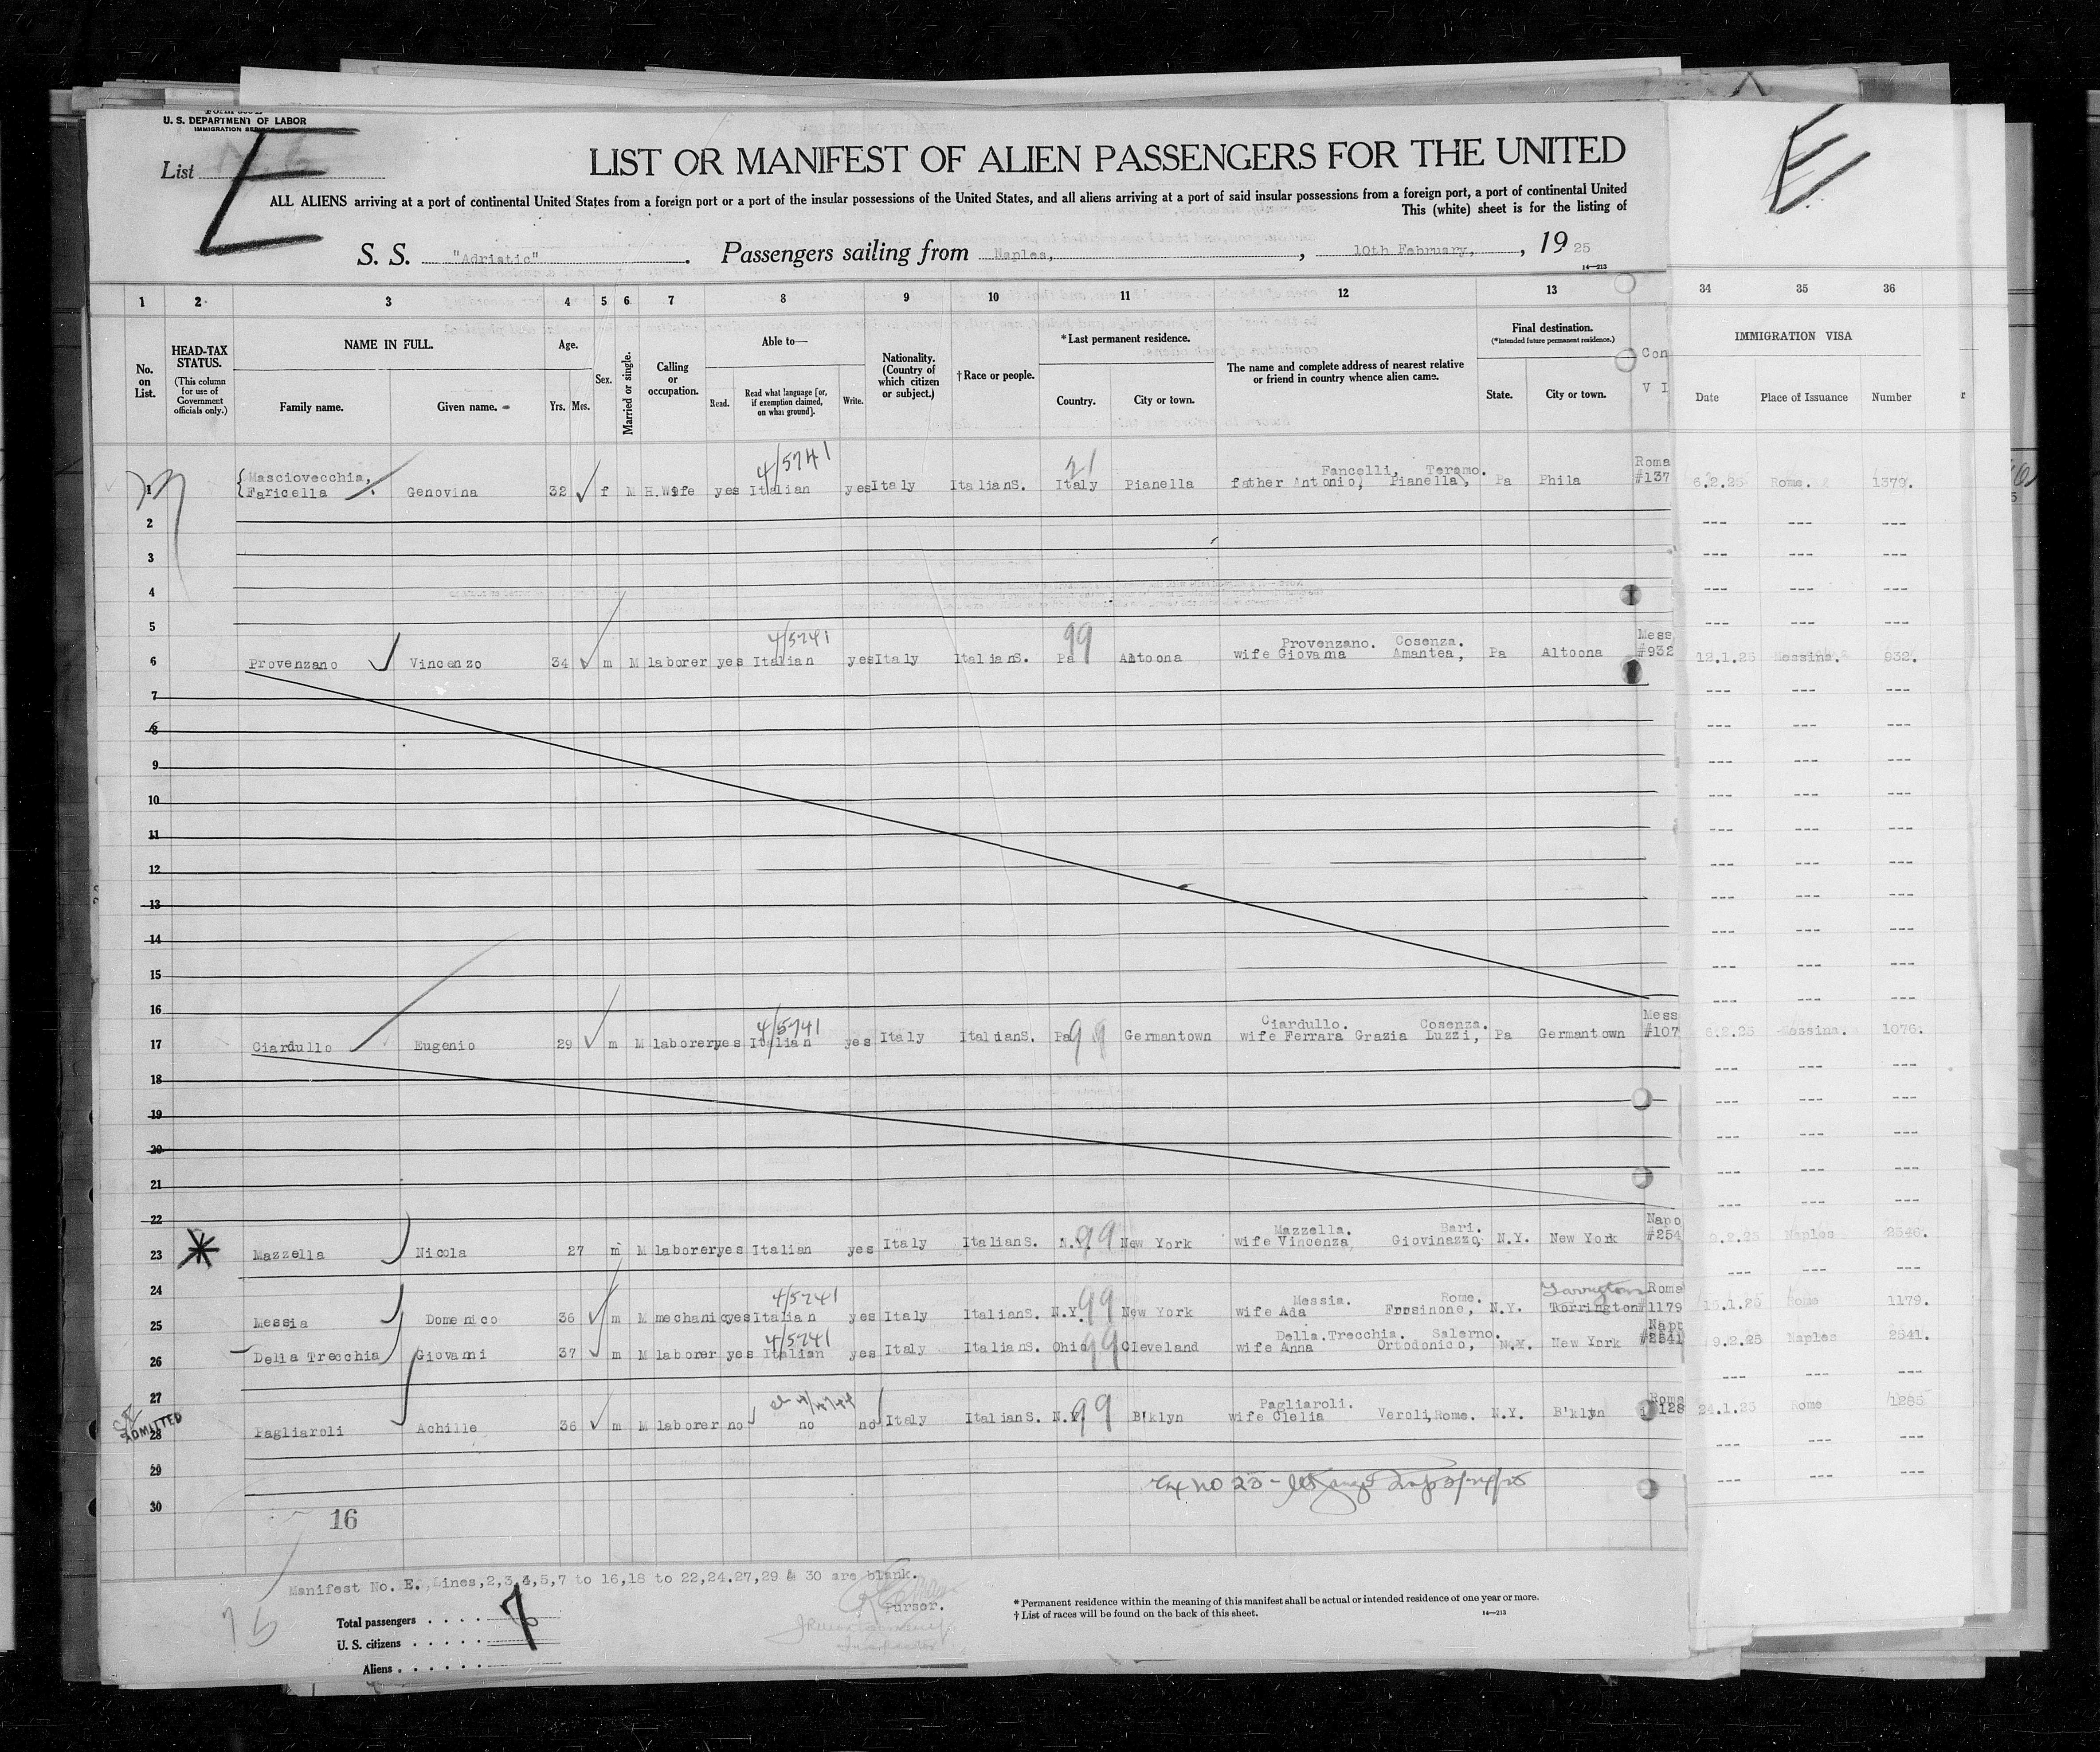 U. S. DEPARTMENT OF LABOR
IMMIGRATION SERVICE
List E
E
LIST OR MANIFEST OF ALIEN PASSENGERS FOR THE UNITED
ALL ALIENS arriving at a port of continental United States from a foreign port or a port of the insular possessions of the United States, and all aliens arriving at a port of said insular possessions from a foreign port, a port of continental United
This (white) sheet is for the listing of
S. S. "Adriatic". Passengers sailing from Naples, , 10th February, , 19 25
14—213
1 2 3 4 5 6 7 8 9 10 11 12 13 34 35 36
No. on List.
HEAD-TAX STATUS.
(This column for use of Government officials only.)
NAME IN FULL.
Family name. Given name.
Age.
Yrs. Mos.
Sex.
Married or single.
Calling or occupation.
Able to—
Read. Read what language [or, if exemption claimed, on what ground]. Write.
Nationality. (Country of which citizen or subject.)
†Race or people.
*Last permanent residence.
Country. City or town.
The name and complete address of nearest relative or friend in country whence alien came.
Final destination.
(*Intended future permanent residence.)
State. City or town.
Con
V I
IMMIGRATION VISA
Date Place of Issuance Number
4/5741 21 Fancelli, Teramo. Roma
Masciovecchia,
1 Faricella Genovina 32 f M H.Wife yes Italian yes Italy ItalianS. Italy Pianella father Antonio, Pianella, Pa Phila #137 6.2.25 Rome. 1372.
2 --- --- ---
3 --- --- ---
4 --- --- ---
5 --- --- ---
4/5741 99 Provenzano. Cosenza. Mess
6 Provenzano Vincenzo 34 m M laborer yes Italian yes Italy ItalianS. Pa Altoona wife Giovanna Amantea, Pa Altoona #932 12.1.25 Messina. 932.
7 --- --- ---
8 --- --- ---
9 --- --- ---
10 --- --- ---
11 --- --- ---
12 --- --- ---
13 --- --- ---
14 --- --- ---
15 --- --- ---
16 --- --- ---
4/5741 99 Ciardullo. Cosenza. Mess
17 Ciardullo Eugenio 29 m M laborer yes Italian yes Italy ItalianS. Pa Germantown wife Ferrara Grazia Luzzi, Pa Germantown #107 6.2.25 Messina. 1076.
18 --- --- ---
19 --- --- ---
20 --- --- ---
21 --- --- ---
22 --- --- ---
99 Mazzella. Bari. Napo
23 Mazzella Nicola 27 m M laborer yes Italian yes Italy ItalianS. N.Y. New York wife Vincenza, Giovinazzo, N.Y. New York #254 9.2.25 Naples 2546.
24 --- --- ---
4/5741 99 Messia. Rome. Roma
25 Messia Domenico 36 m M mechanic yes Italian yes Italy ItalianS. N.Y. New York wife Ada Frosinone, N.Y. Torrington #1179 Rome 1179.
4/5741 99 Della.Trecchia. Salerno. Napt
26 Della Trecchia Giovanni 37 m M laborer yes Italian yes Italy ItalianS. Ohio Cleveland wife Anna Ortodonico, N.Y. New York #2541 9.2.25 Naples 2541.
27 --- --- ---
ADMITTED 99 Pagliaroli. Roma
28 Pagliaroli Achille 36 m M laborer no no no Italy ItalianS. N.Y. B'klyn wife Clelia Veroli, Rome. N.Y. B'klyn 128 24.1.25 Rome 1286
29 --- --- ---
30 --- --- ---
16
Manifest No. E. Lines,2,3,4,5,7 to 16,18 to 22,24.27,29 & 30 are blank.
Purser.
Total passengers . . . . 7
U. S. citizens . . . . .
Aliens . . . . . .
* Permanent residence within the meaning of this manifest shall be actual or intended residence of one year or more.
† List of races will be found on the back of this sheet.
14—213